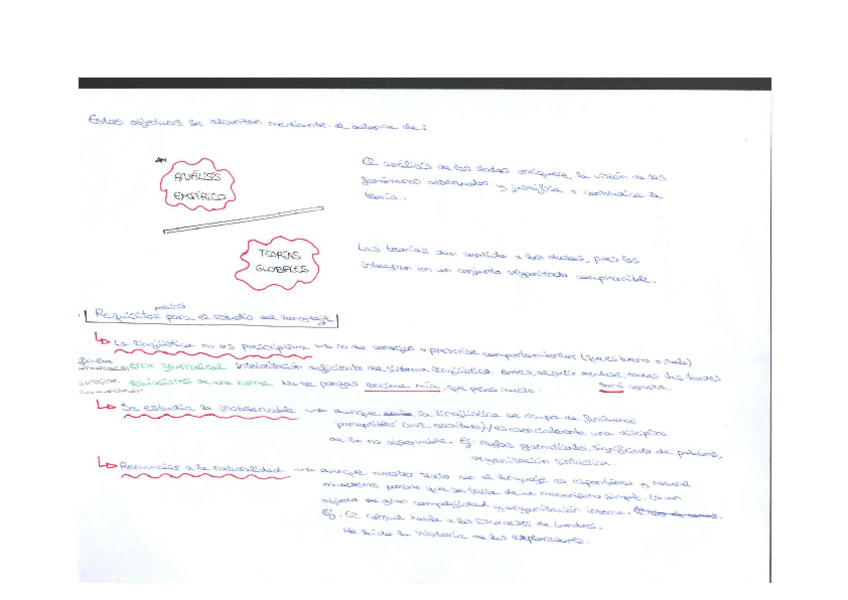 Estos objetivos se alcanzan mediante el balance de:
ANÁLISIS
EMPÍRICO
El análisis de los datos enriquece la visión de los
fenómenos observados y justifica o contradice la
teoría.
TEORÍAS
GLOBALES
Las teorías dan sentido a los datos, pues los
integran en un conjunto organizado comprensible.
Requisitos para el estudio del lenguaje
La lingüística no es prescriptiva → no da consejos o prescribe comportamientos (qué es bueno o malo)
error gramatical interiorización insuficiente de sistema lingüístico.
de una norma No te pongas encima mía, que peso mucho.
Se estudia lo inobservable → aunque la lingüística se ocupa de fenómenos
perceptibles (voz, escritura), es esencialmente una disciplina
de lo no observable. Ej: reglas gramaticales, significado de palabras,
organización sintáctica.
Renunciar a la naturalidad → aunque nuestro trato con el lenguaje es espontáneo y natural
no debemos pensar que se trata de un mecanismo simple. Es un
objeto de gran complejidad y organización interna.
Ej: El cónsul habla a los de Londres.
He leído la historia de los exploradores.